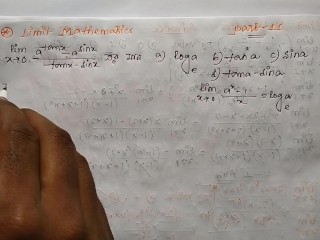 Limit Mathematics part-15
lim x→0 a^tanx - a^sinx / tanx - sinx এর মান a) log_e a b) tan a c) sin a
d) tana - sina
lim x→0 a^x - 1 / x = log_e a